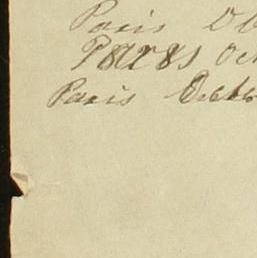 Paris Ob
Paris Oct
Paris Octob